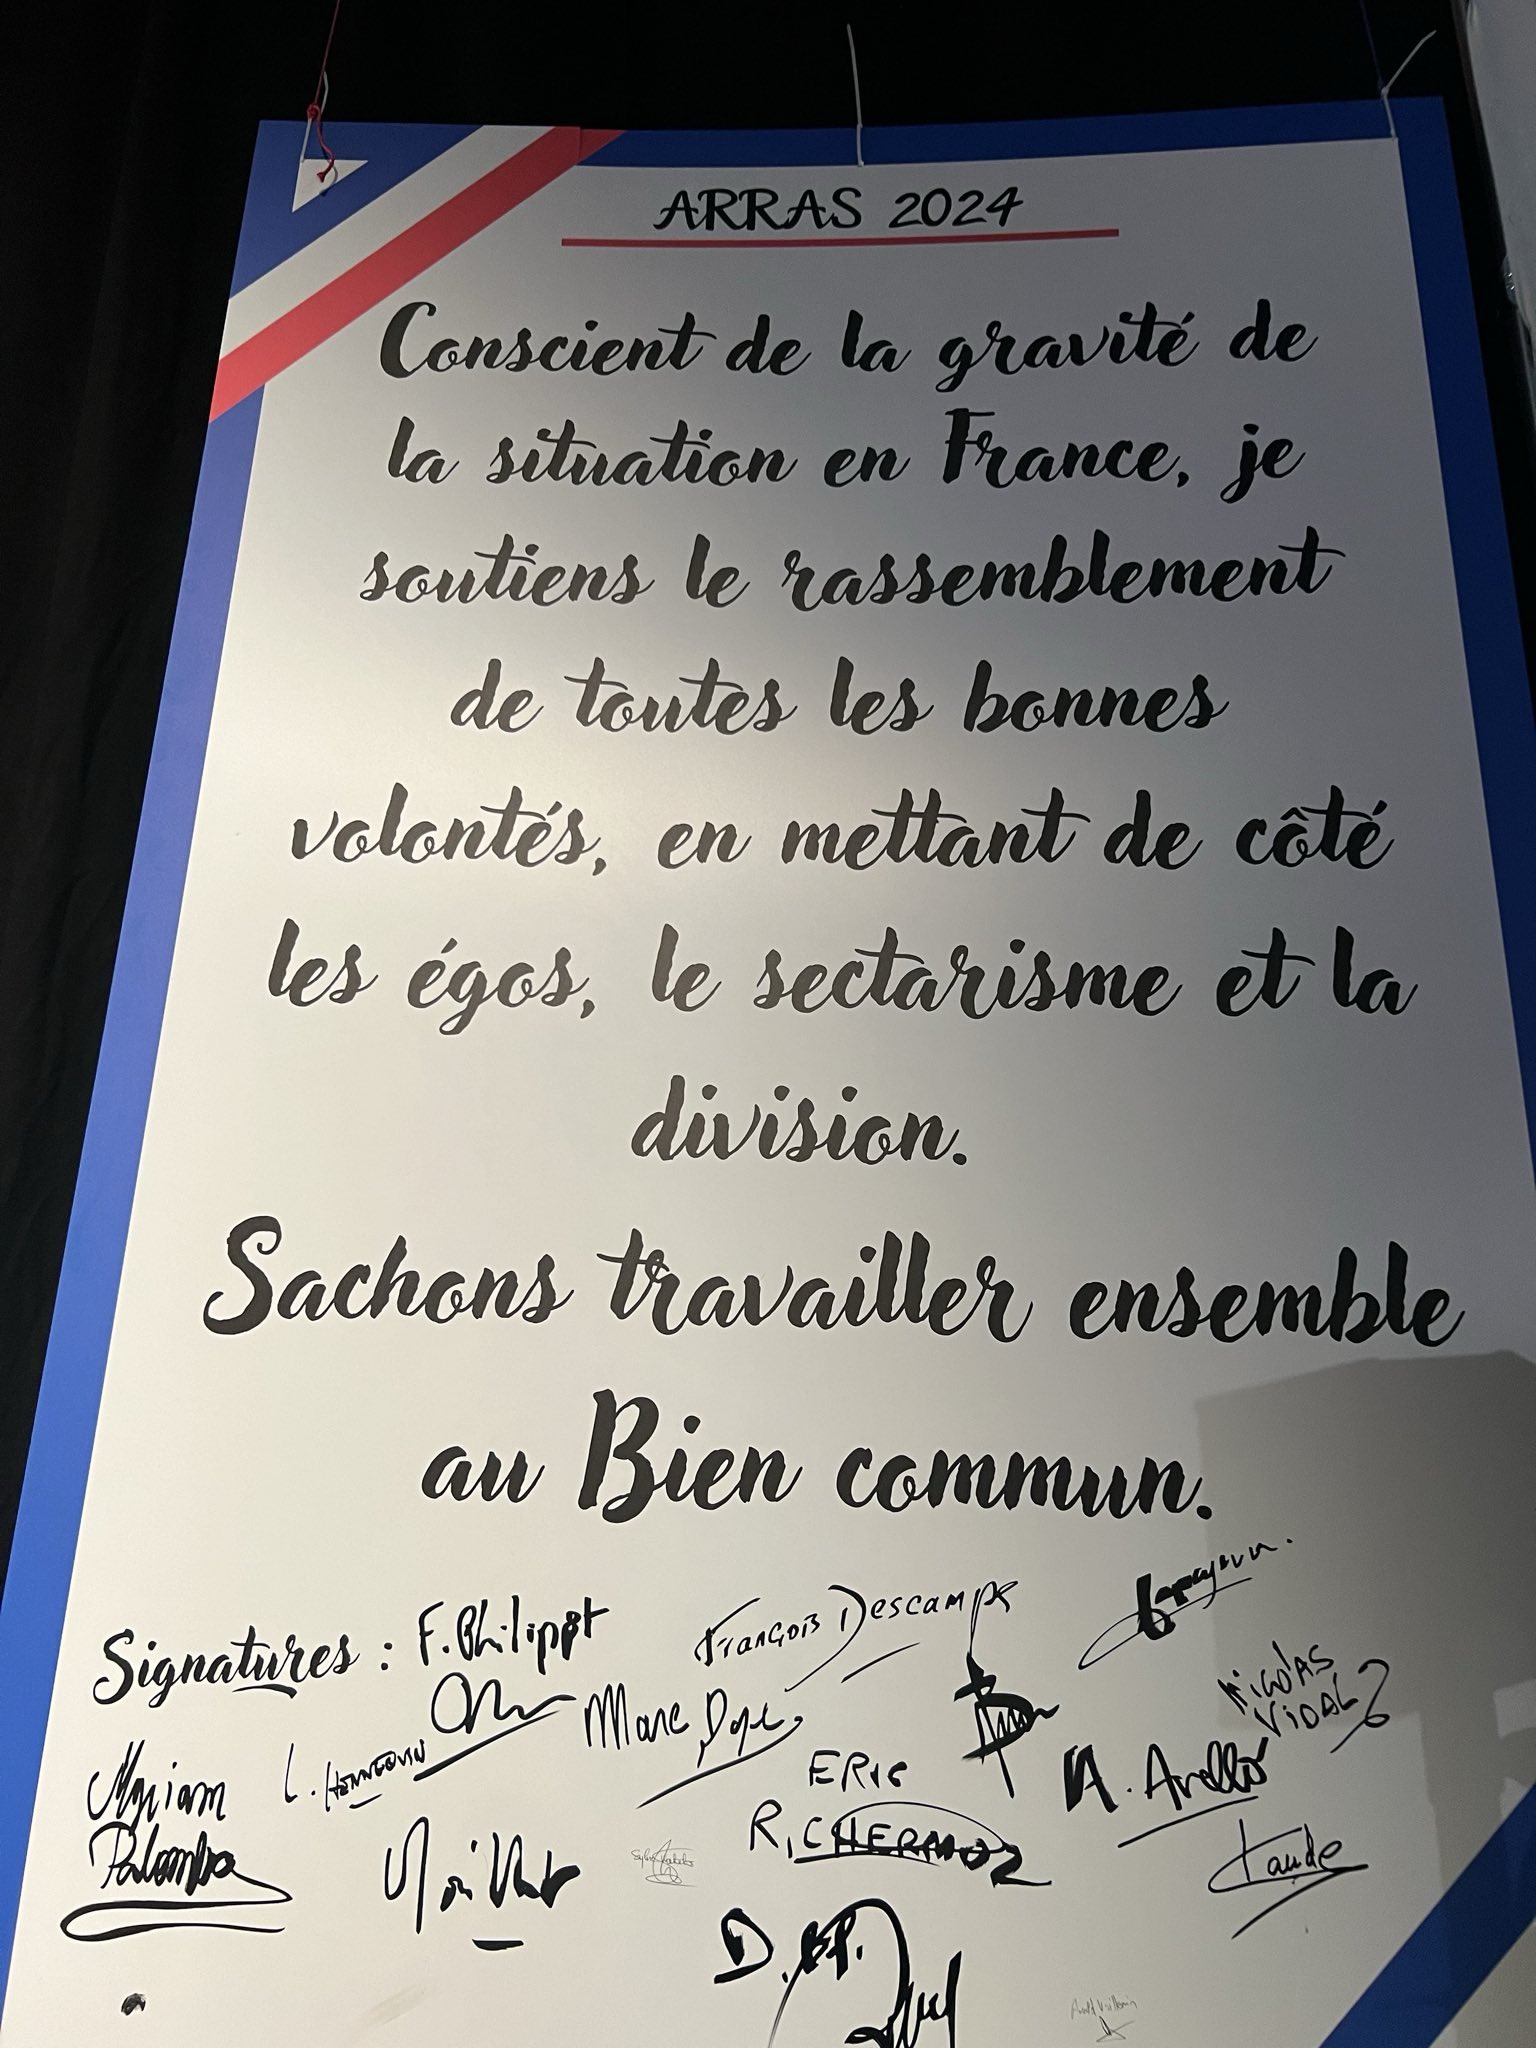 ARRAS 2024
Conscient de la gravité de
la situation en France, je
soutiens le rassemblement
de toutes les bonnes
volontés, en mettant de côté
les égos, le sectarisme et la
division.
Sachons travailler ensemble
au Bien commun.
Signatures :
F. Philippot
François Descamps
NICOLAS
VIDAL
Marc Doyer
L. HENNEQUIN
Myriam
Palomba
ERIC
RICHERMOZ
A.
Claude